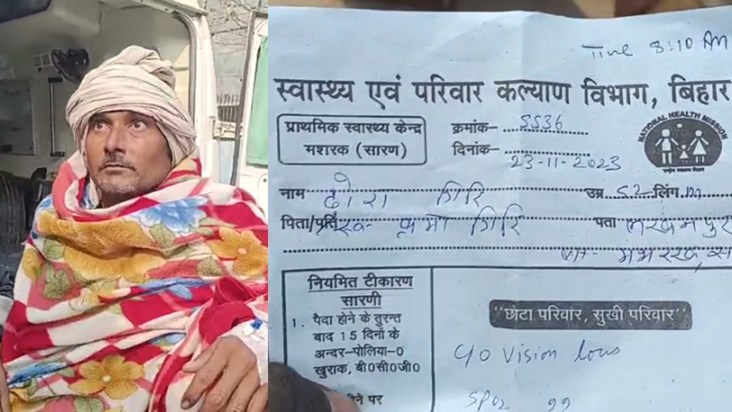 Time 8:10 AM
स्वास्थ्य एवं परिवार कल्याण विभाग, बिहार
प्राथमिक स्वास्थ्य केन्द्र
मशरक (सारण)
क्रमांक- 5536
दिनांक- 23-11-2023
NATIONAL HEALTH MISSION
नाम ढोरा गिरि उम्र 52 लिंग m
पिता/पति स्व- गिरि पता लखनपुर
नियमित टीकारण
सारणी
1. पैदा होने के तुरन्त
बाद 15 दिनों के
अन्दर-पोलिया-0
खुराक, बी0सी0जी0
"छोटा परिवार, सुखी परिवार"
c/o vision loss
SPO2 99
पर